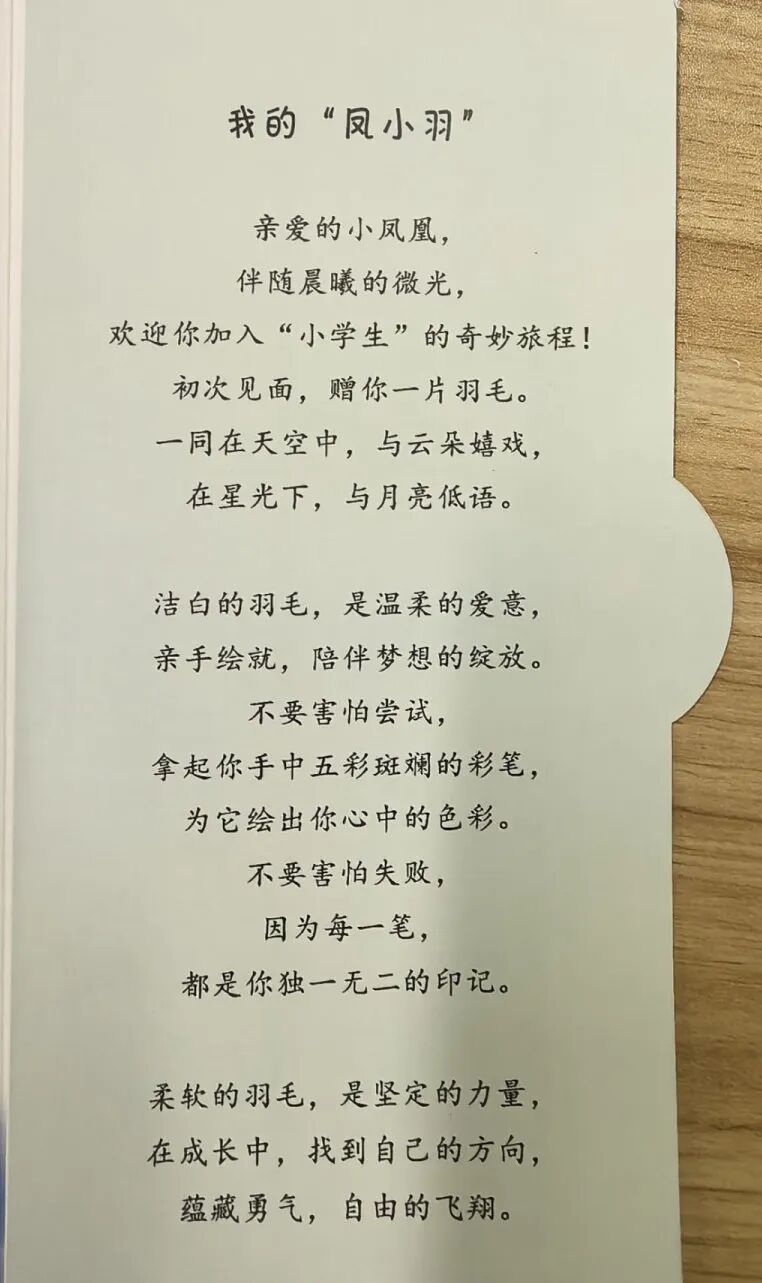 我的“凤小羽”
亲爱的小凤凰，
伴随晨曦的微光，
欢迎你加入“小学生”的奇妙旅程！
初次见面，赠你一片羽毛。
一同在天空中，与云朵嬉戏，
在星光下，与月亮低语。
洁白的羽毛，是温柔的爱意，
亲手绘就，陪伴梦想的绽放。
不要害怕尝试，
拿起你手中五彩斑斓的彩笔，
为它绘出你心中的色彩。
不要害怕失败，
因为每一笔，
都是你独一无二的印记。
柔软的羽毛，是坚定的力量，
在成长中，找到自己的方向，
蕴藏勇气，自由的飞翔。